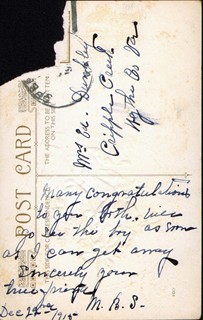 POST CARD
THE ADDRESS TO BE
ON THIS
Mrs
Cripple Creek
Wythe Co Va
Many congratulations
to you both. will
go see the boy as soon
as I can get away
Sincerely your
true friend
M. R. S.
Dec 22nd 1915